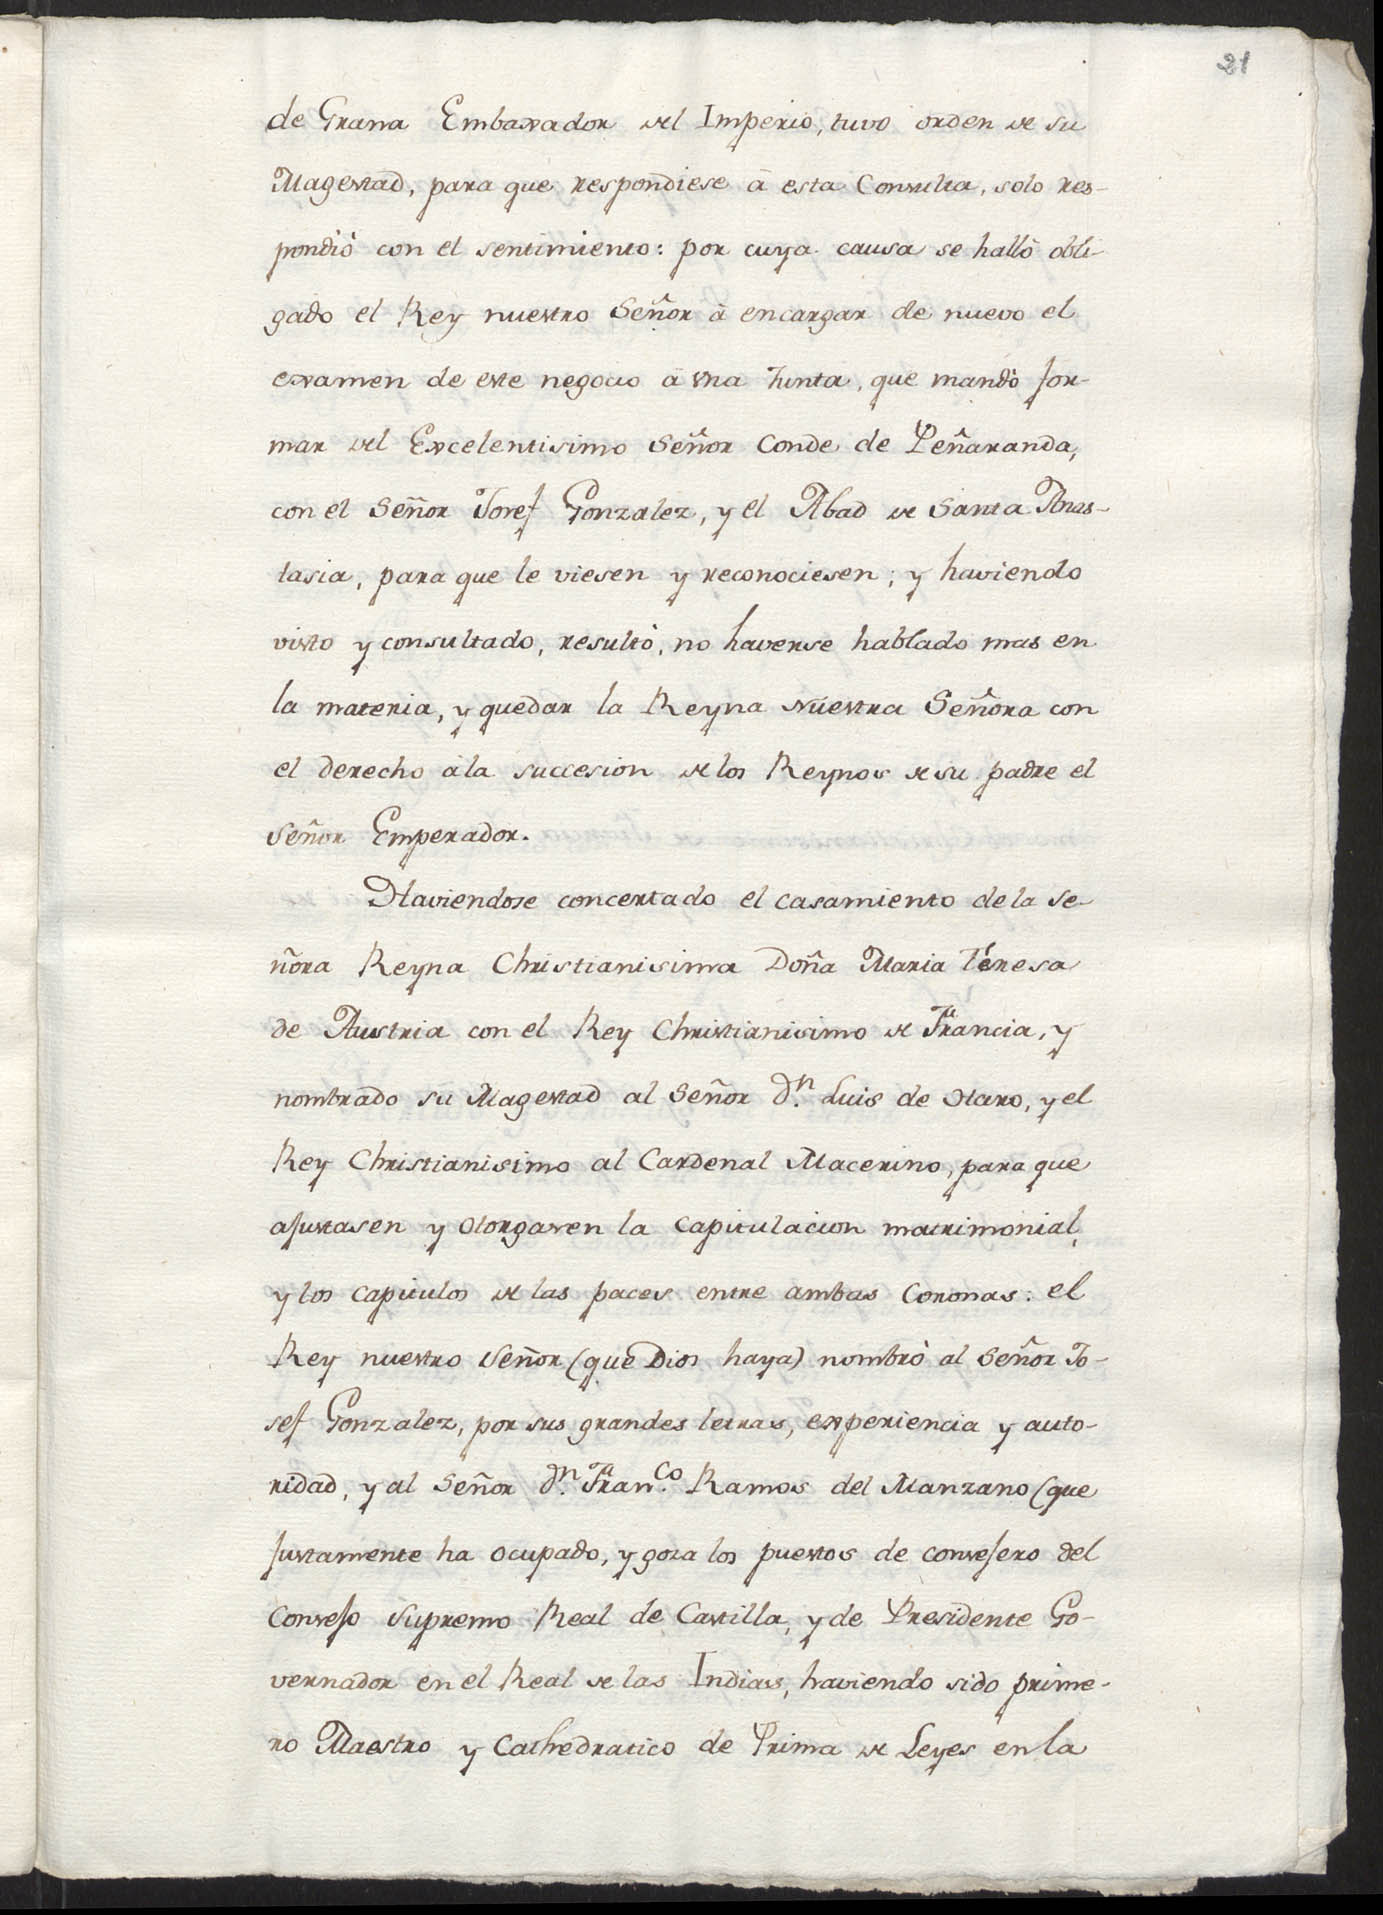 21
de Grana Embaxador del Imperio, tuvo orden de su
Magestad, para que respondiese à esta Consulta, solo res-
pondiò con el sentimiento: por cuya causa se hallò obli-
gado el Rey nuestro Señor à encargar de nuevo el
examen de este negocio à vna Junta, que mandò for-
mar del Excelentisimo Señor Conde de Peñaranda,
con el Señor Josef Gonzalez, y el Abad de Santa Anas-
tasia, para que le viesen y reconociesen; y haviendo
visto y consultado, resultò, no haverse hablado mas en
la materia, y quedar la Reyna Nuestra Señora con
el derecho à la succesion de los Reynos de su padre el
Señor Emperador.
Haviendose concertado el casamiento de la Se-
ñora Reyna Christianisima Doña Maria Téresa
de Austria con el Rey Christianisimo de Francia, y
nombrado su Magestad al Señor Dn. Luis de Haro, y el
Rey Christianisimo al Cardenal Macerino, para que
ajustasen y otorgasen la capitulacion matrimonial,
y los capitulos de las paces entre ambas Coronas: el
Rey nuestro Señor (que Dios haya) nombrò al Señor Jo-
sef Gonzalez, por sus grandes letras, experiencia y auto-
ridad, y al Señor Dn. Franco. Ramos del Manzano (que
justamente ha ocupado, y goza los puestos de consejero del
Consejo Supremo Real de Castilla, y de Presidente Go-
vernador en el Real de las Indias, haviendo sido prime-
ro Maestro y Cathedratico de Prima de Leyes en la